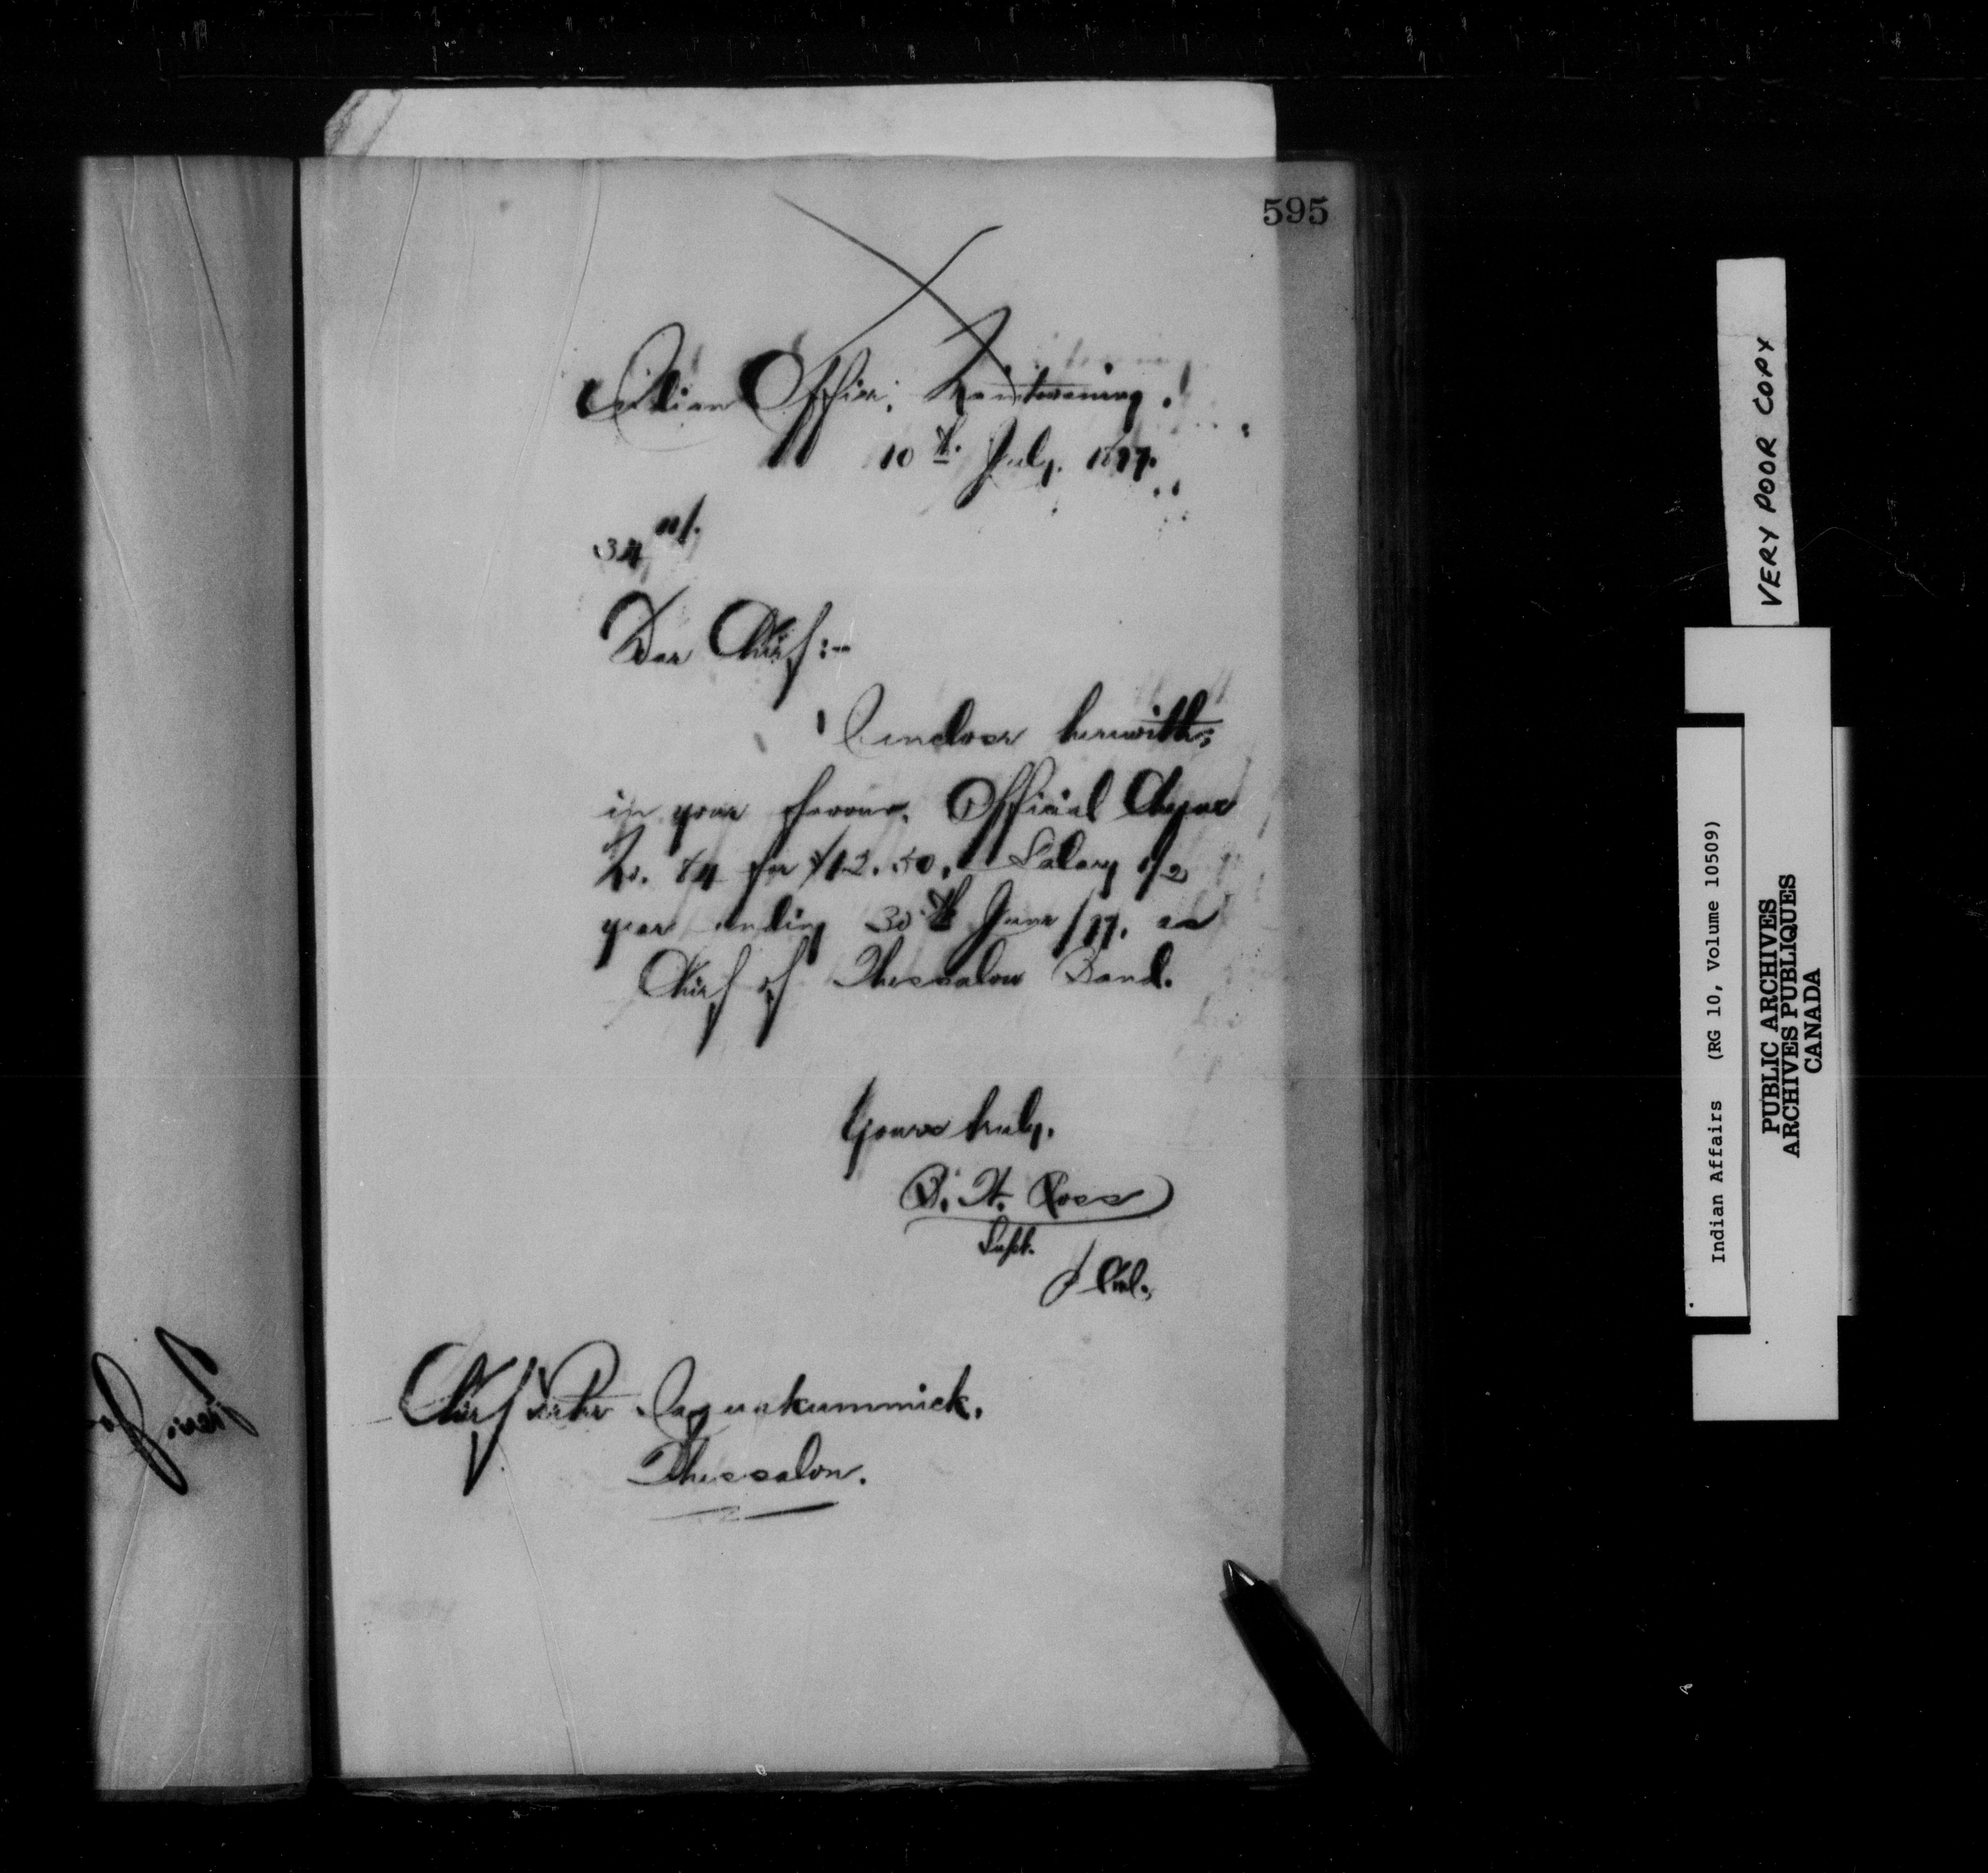 595
Indian Office, Manitowaning.
10th July, 1897.
Dear Chief:-
I enclose herewith,
in your favour, Official Cheque
No. 84 for $12.50, Salary 1/2
year ending 30th June /97. as
Chief of Thessalon Band.
Yours truly,
B. W. Ross
Supt.
Chief Peter
Thessalon.
VERY POOR COPY
Indian Affairs (RG 10, Volume 10509)
PUBLIC ARCHIVES
ARCHIVES PUBLIQUES
CANADA